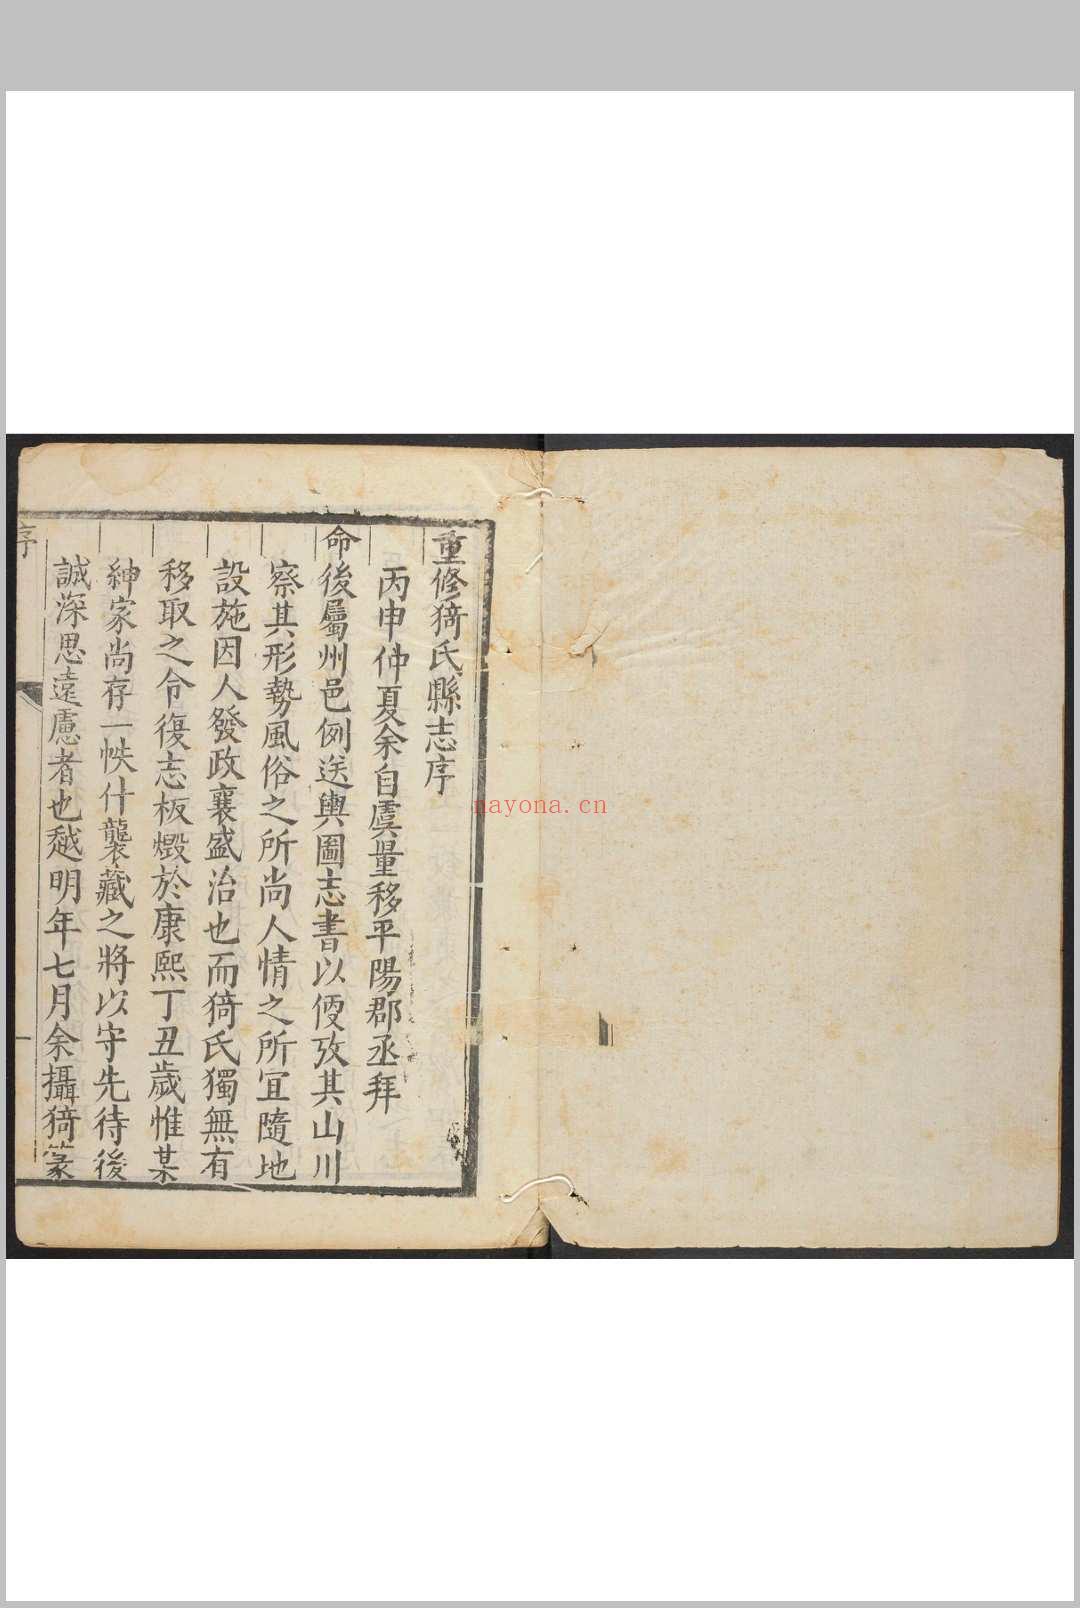 重修猗氏縣志序
丙申仲夏余自虞量移平陽郡丞拜
命後屬州邑例送輿圖志書以便攷其山川
察其形勢風俗之所尚人情之所宜隨地
設施因人發政襄盛治也而猗氏獨無有
移取之令復志板燬於康熙丁丑歲惟某
紳家尚存一帙什襲藏之將以守先待後
誠深思遠慮者也越明年七月余攝猗篆
序
nayona.cn